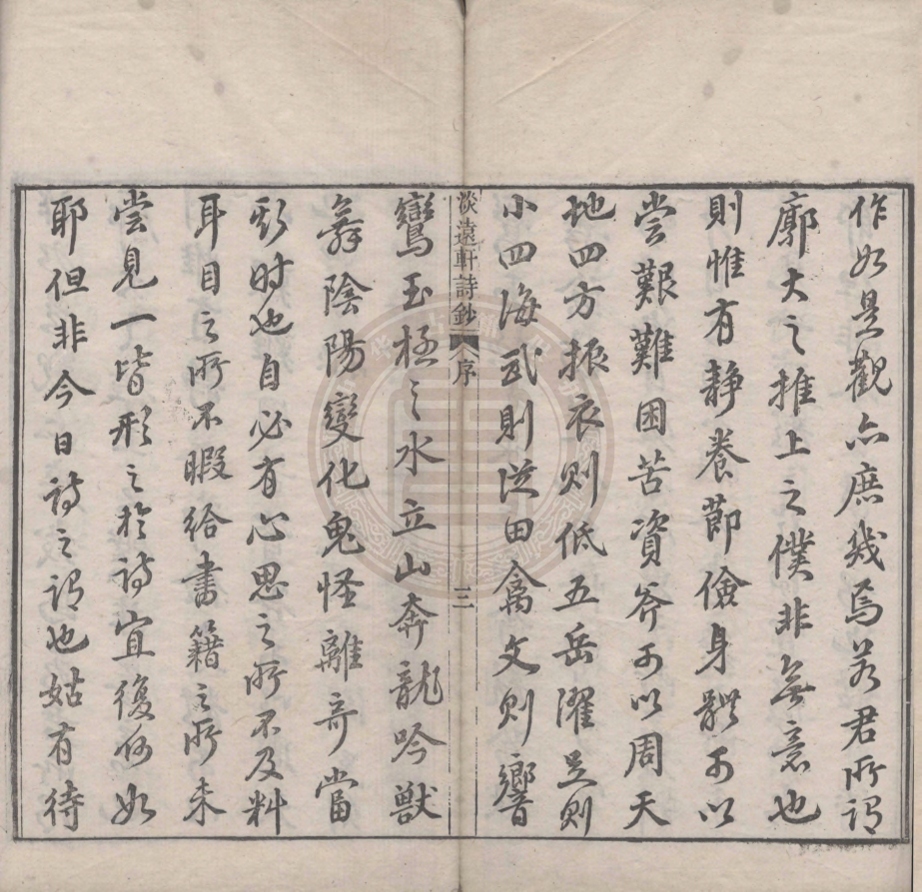 作如是觀亦庶幾焉若君所謂
廓大之推上之僕非無意也
則惟有靜養節儉身體可以
嘗艱難困苦資斧可以周天
地四方振衣則低五岳濯足則
小四海武則從田禽文則響
淡遠軒詩鈔 序 三
鸞玉極之水立山奔龍吟獸
舞陰陽變化鬼怪離奇當
斯时也自必有心思之所不及料
耳目之所不暇給書籍之所未
嘗見一皆形之於詩宜復何如
耶但非今日詩之謂也姑有待